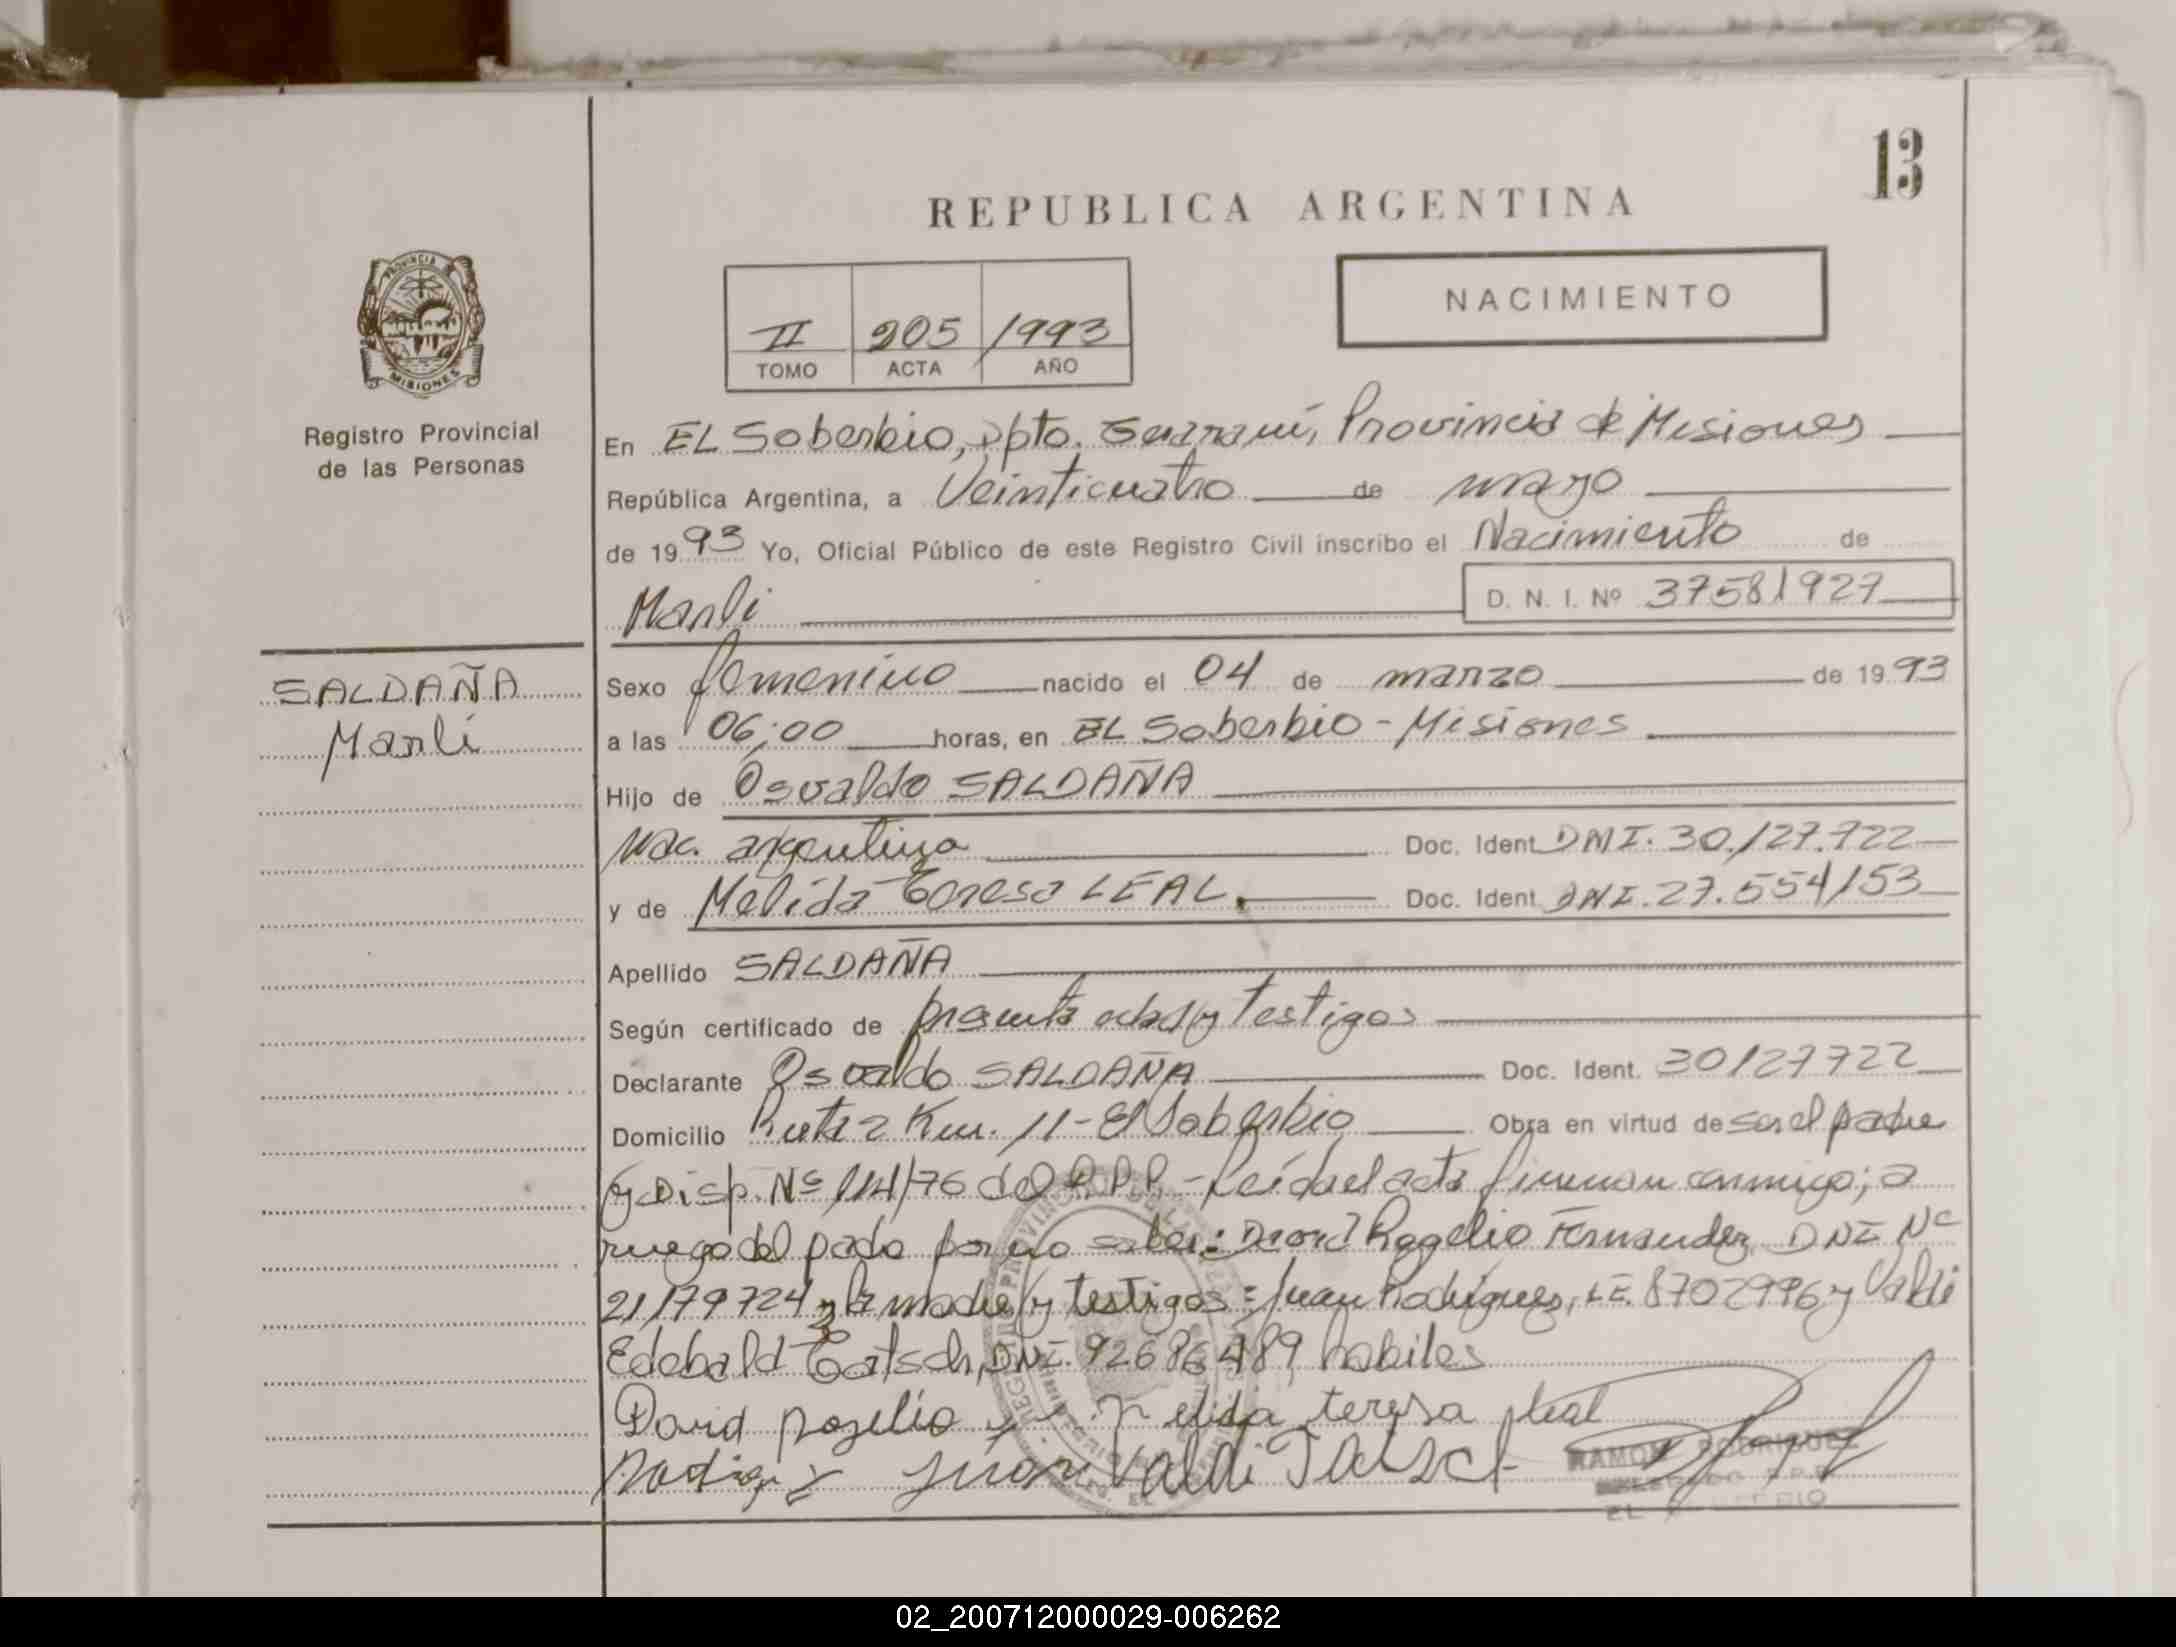 13
REPUBLICA ARGENTINA
NACIMIENTO
PROVINCIA DE
MISIONES
II 205 1993
TOMO ACTA AÑO
Registro Provincial
de las Personas
En EL Soberbio, Dpto. Guaraní, Provincia de Misiones
República Argentina, a Veinticuatro de marzo
de 1993 Yo, Oficial Público de este Registro Civil inscribo el Nacimiento de
Marli D. N. I. Nº 37581927
SALDAÑA
Marli
Sexo femenino nacido el 04 de marzo de 1993
a las 06;00 horas, en EL Soberbio - Misiones
Hijo de Osvaldo SALDAÑA
Nac. argentina Doc. Ident. DNI. 30.127.722
y de Melida Teresa LEAL. Doc. Ident. DNI. 27.554153
Apellido SALDAÑA
Según certificado de presenta y testigos
Declarante Osvaldo SALDAÑA Doc. Ident. 30127722
Domicilio Ruta 2 Km. 11 - El Soberbio Obra en virtud de ser el padre
y Disp. Nº 114/76 del R.P.P. - Leída el acta firman conmigo; a
ruego del padre por no saber: David Rogelio Fernandez DNI Nº
21179724, la madre y testigos: Juan Rodriguez, LE. 8702996 y Valdi
Edobald Tatsch, DNI. 92686489, habiles
David Rogelio Melida teresa leal
Rodriguez Juan Valdi Tatsch
RAMON RODRIGUEZ
DELEGADO R.P.P.
EL SOBERBIO
02_200712000029-006262